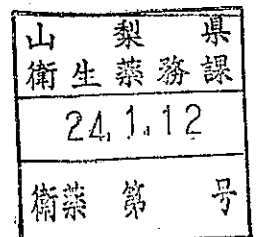 山梨県
衛生薬務課
24.1.12
衛薬第 号